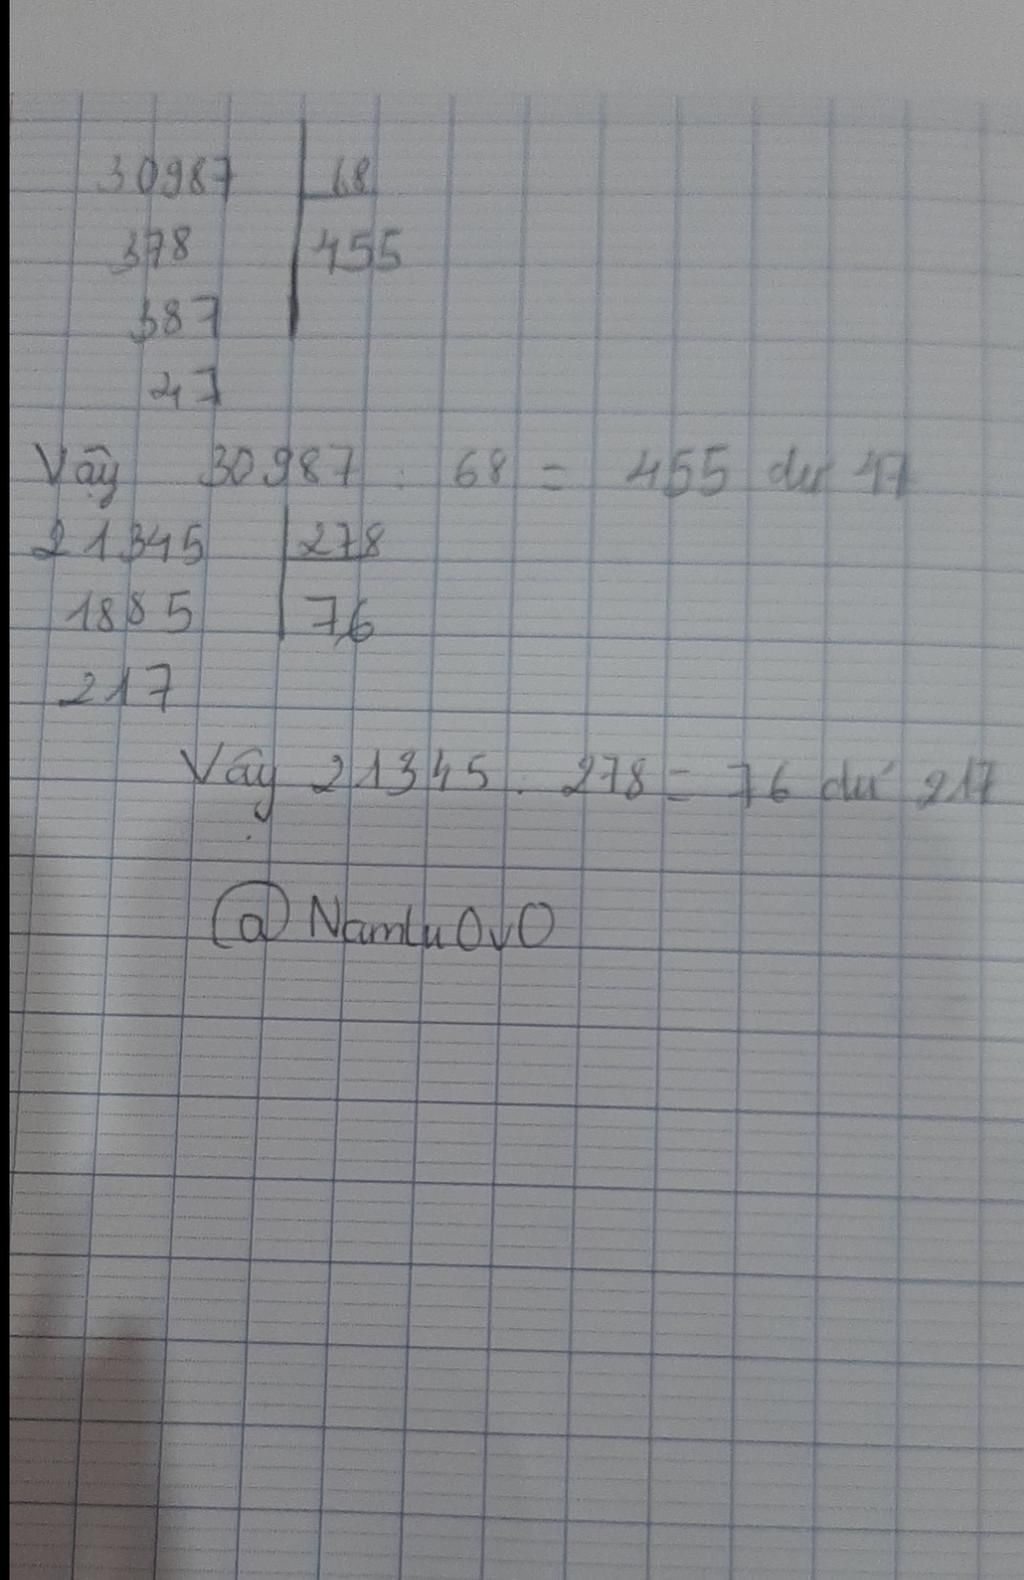 30987 68
378 455
387
47
Vậy 30987 : 68 = 455 dư 47
21345 278
1885 76
217
Vậy 21345 : 278 = 76 dư 217
@NamluOvO